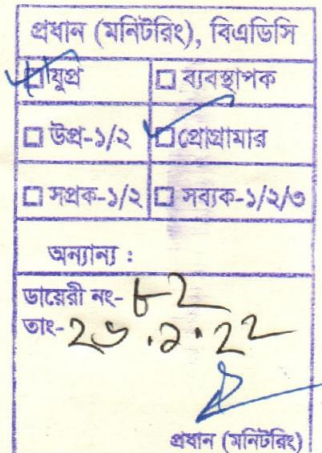 প্রধান (মনিটরিং), বিএডিসি
যুপ্র □ ব্যবস্থাপক
□ উপ্র-১/২ □ প্রোগ্রামার
□ সপ্রক-১/২ □ সব্যক-১/২/৩
অন্যান্য :
ডায়েরী নং- ৮২
তাং-
প্রধান (মনিটরিং)